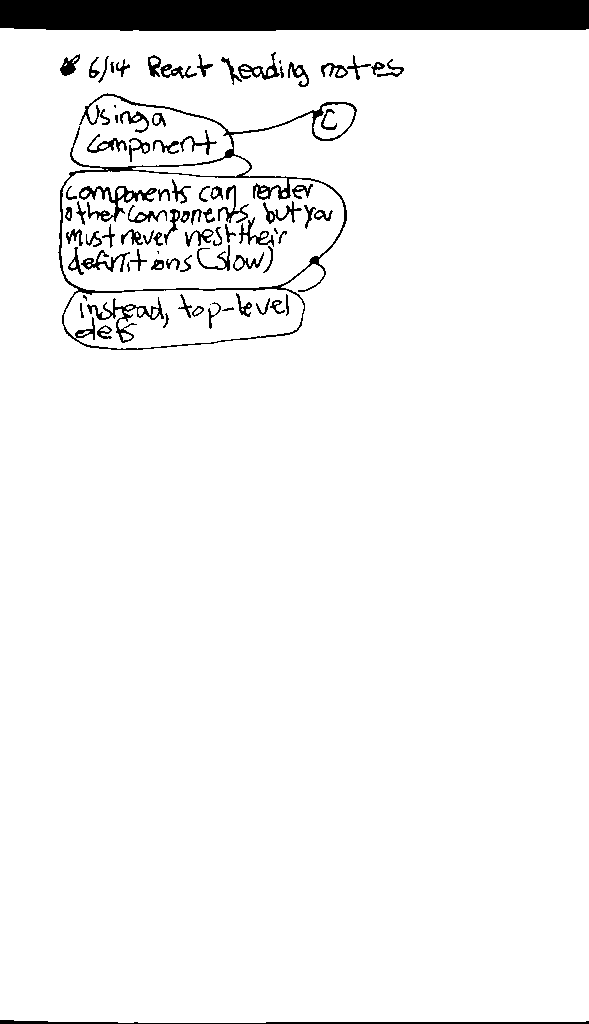 6/14 React Reading notes
Using a
component
C
Components can render
other components, but you
must never nest their
definitions (slow)
instead, top-level
defs